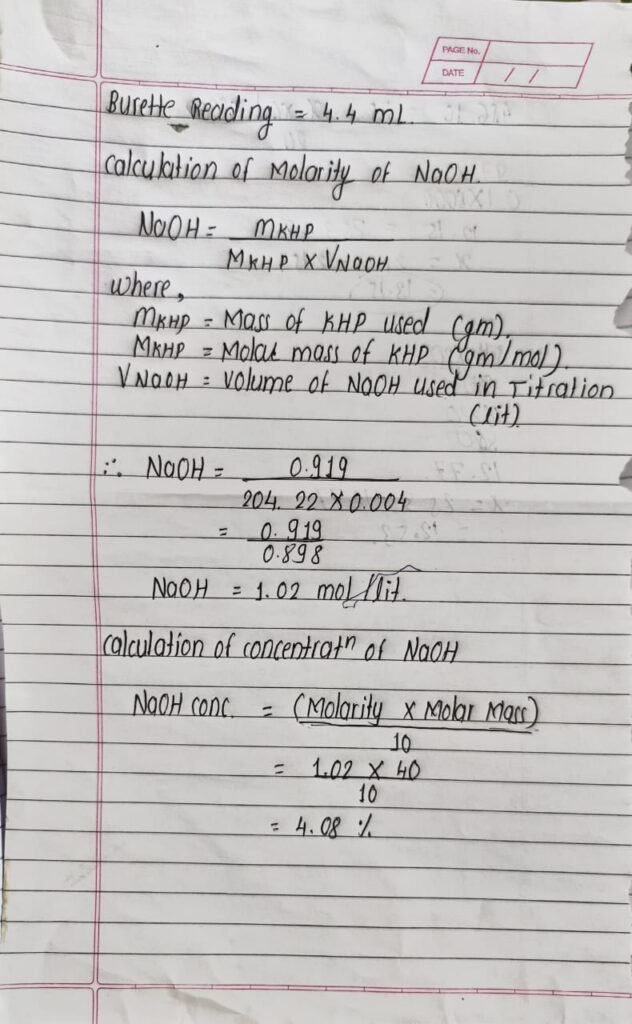 PAGE No.
DATE / /
Burette Reading = 4.4 mL.
Calculation of Molarity of NaOH.
NaOH = mKHP
MKHP X VNaOH
where,
mKHP = Mass of KHP used (gm).
MKHP = Molar mass of KHP (gm/mol).
VNaOH = Volume of NaOH used in Titration
(lit)
∴ NaOH = 0.919
204.22 X 0.004
= 0.919
0.898
NaOH = 1.02 mol/lit.
Calculation of concentratn of NaOH
NaOH conc. = (Molarity x Molar Mass)
10
= 1.02 X 40
10
= 4.08 %